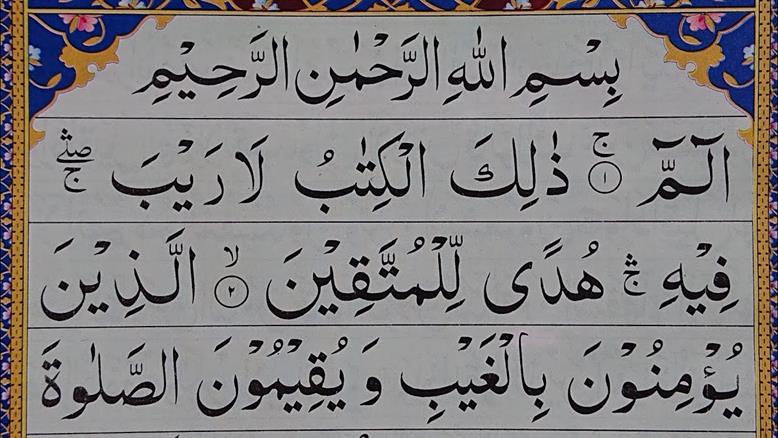 بِسْمِ اللهِ الرَّحْمٰنِ الرَّحِيْمِ
الٓـمّٓ ۚ ﴿١﴾ ذٰلِكَ الْكِتٰبُ لَا رَيْبَ ۛۖۚ
فِيْهِ ۛۚ هُدًى لِّلْمُتَّقِيْنَ ۙ ﴿٢﴾ الَّذِيْنَ
يُؤْمِنُوْنَ بِالْغَيْبِ وَ يُقِيْمُوْنَ الصَّلٰوةَ